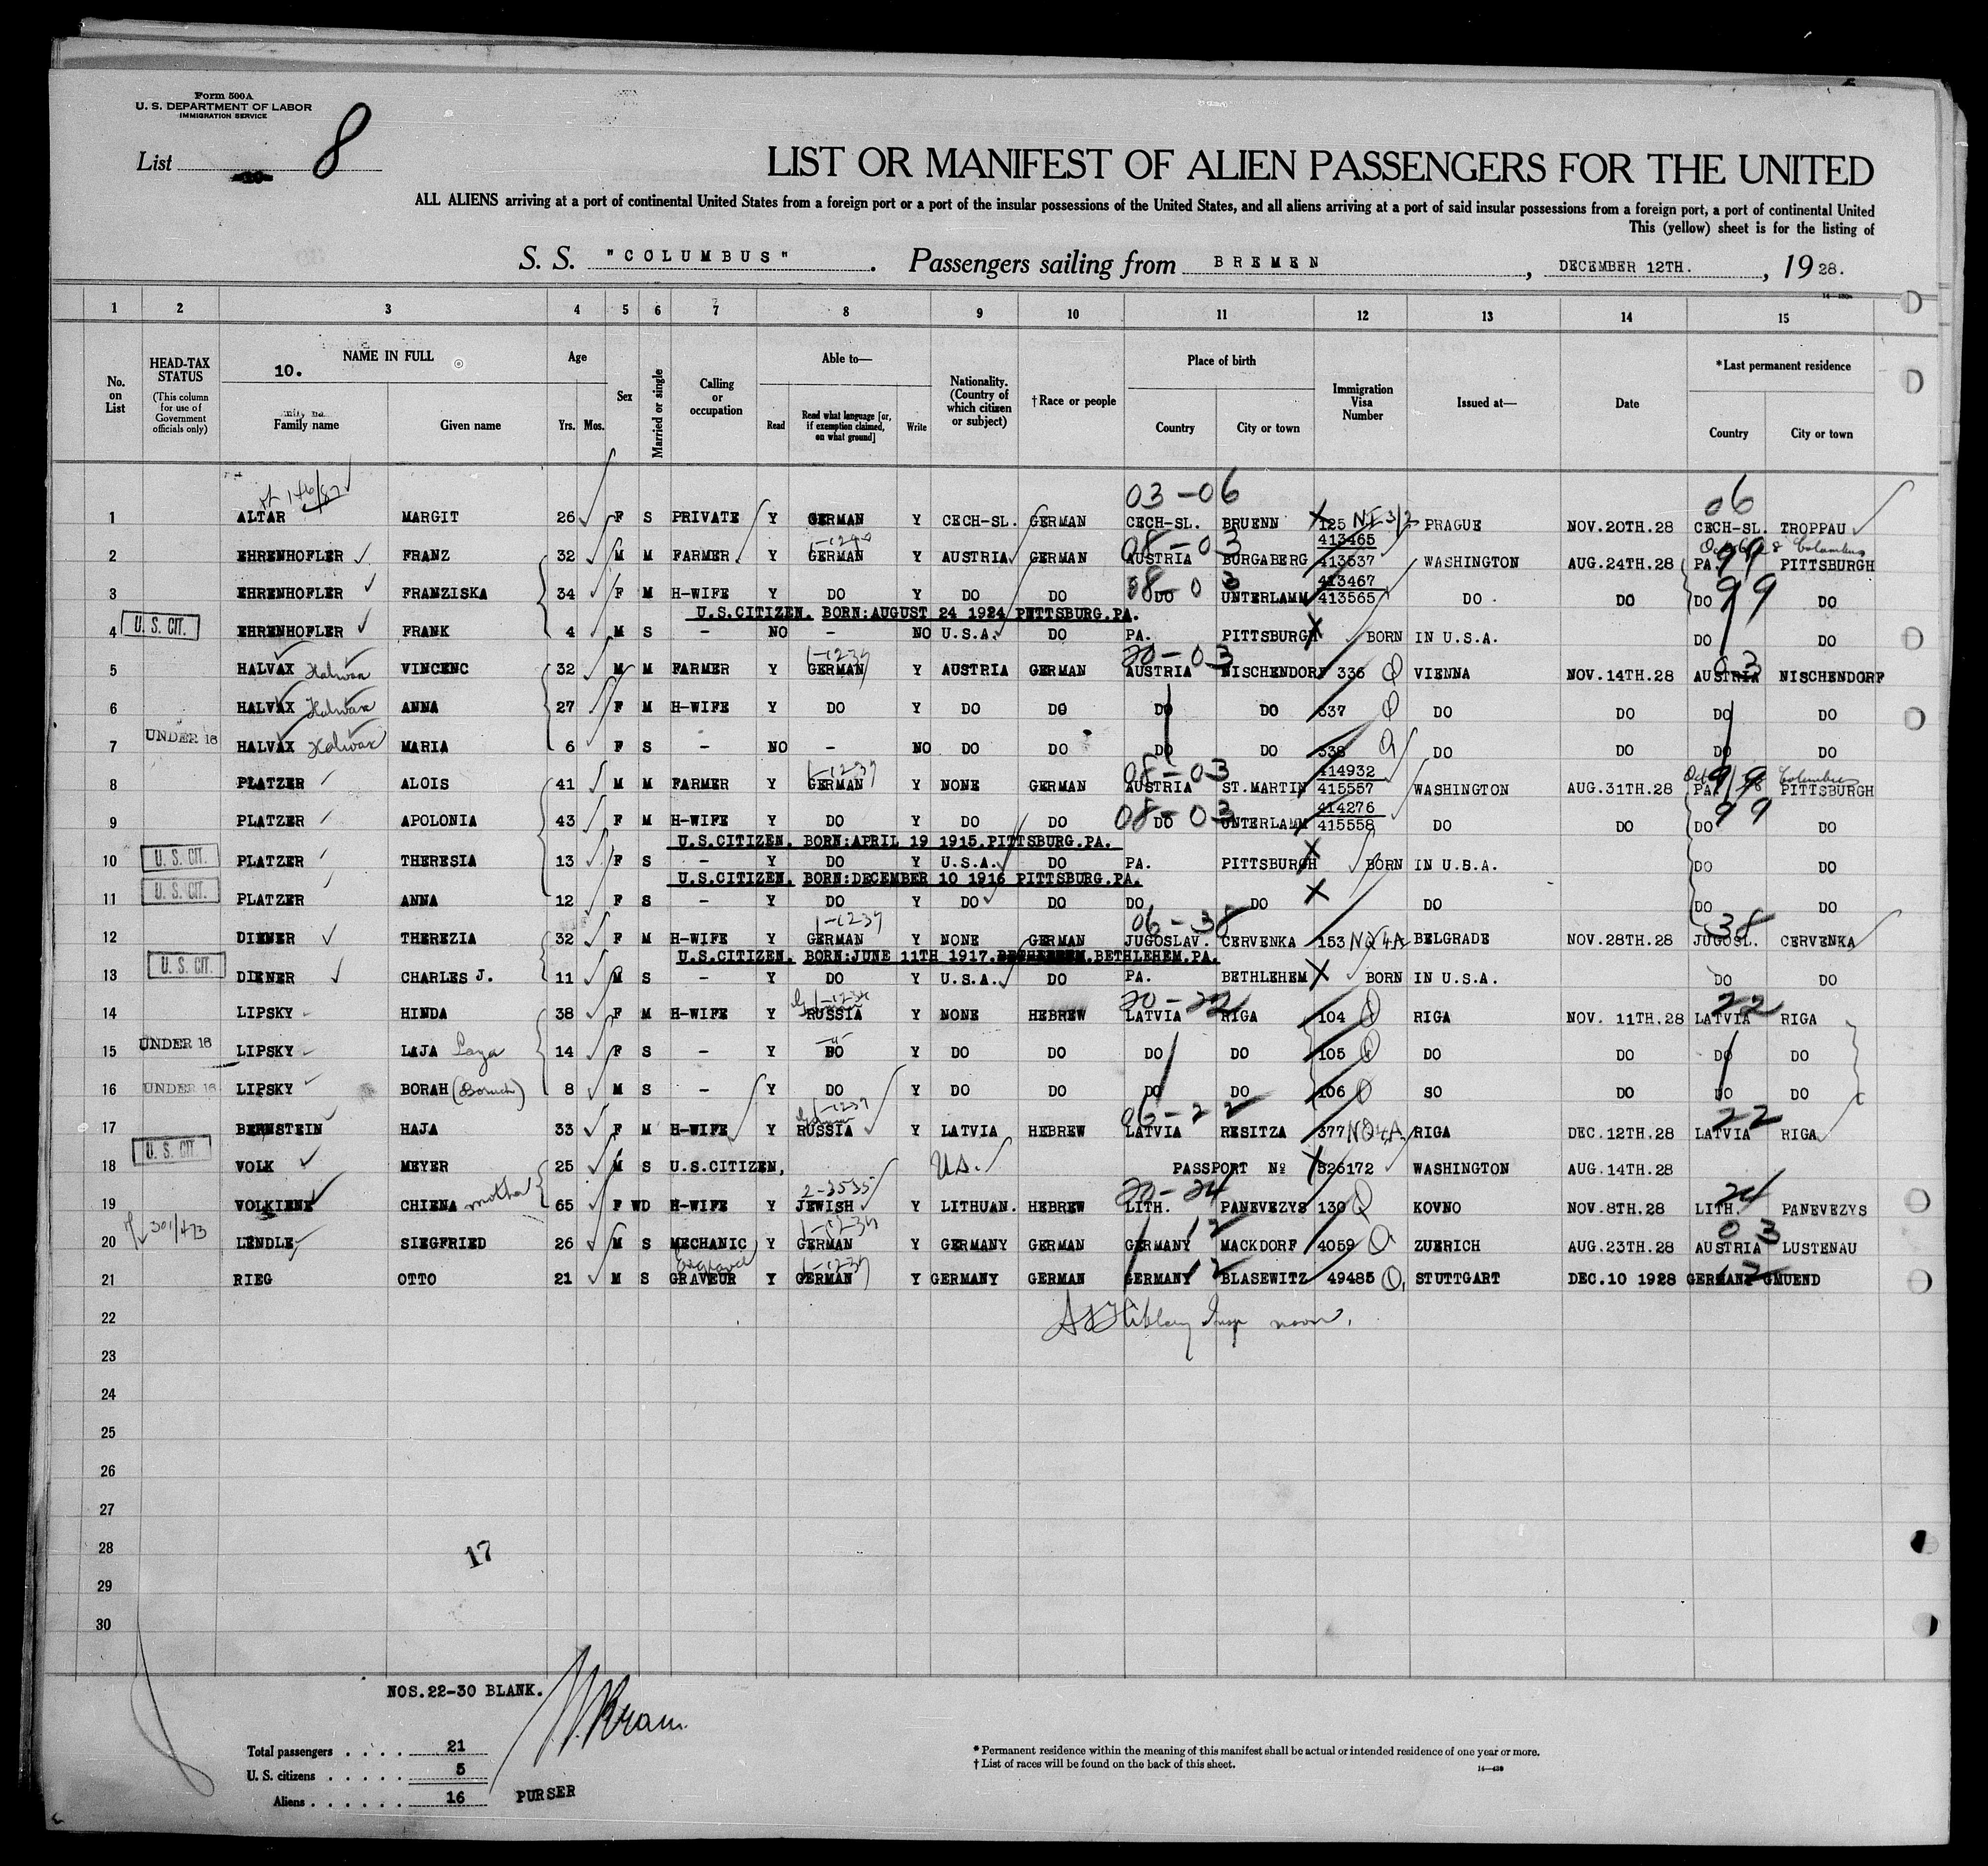 Form 500A
U. S. DEPARTMENT OF LABOR
IMMIGRATION SERVICE
List 8
LIST OR MANIFEST OF ALIEN PASSENGERS FOR THE UNITED
ALL ALIENS arriving at a port of continental United States from a foreign port or a port of the insular possessions of the United States, and all aliens arriving at a port of said insular possessions from a foreign port, a port of continental United
This (yellow) sheet is for the listing of
S. S. "COLUMBUS". Passengers sailing from BREMEN, DECEMBER 12TH., 1928.
1 2 3 4 5 6 7 8 9 10 11 12 13 14 15
No. on List
HEAD-TAX STATUS (This column for use of Government officials only)
NAME IN FULL 10.
Family name Given name
Age Yrs. Mos.
Sex
Married or single
Calling or occupation
Able to— Read Read what language [or, if exemption claimed, on what ground] Write
Nationality. (Country of which citizen or subject)
†Race or people
Place of birth Country City or town
Immigration Visa Number
Issued at—
Date
*Last permanent residence Country City or town
146/87 03-06 06
1 ALTAR MARGIT 26 F S PRIVATE Y GERMAN Y CECH-SL. GERMAN CECH-SL. BRUENN 125 NI 3/2 PRAGUE NOV.20TH.28 CECH-SL. TROPPAU
08-03 413465 Columbus
2 EHRENHOFLER FRANZ 32 M M FARMER Y GERMAN Y AUSTRIA GERMAN AUSTRIA BURGABERG 413537 WASHINGTON AUG.24TH.28 PA. 99 PITTSBURGH
08-03 413467
3 EHRENHOFLER FRANZISKA 34 F M H-WIFE Y DO Y DO DO DO UNTERLAMM 413565 DO DO DO 99 DO
U.S.CITIZEN. BORN:AUGUST 24 1924 PITTSBURG.PA.
4 U. S. CIT. EHRENHOFLER FRANK 4 M S - NO - NO U.S.A. DO PA. PITTSBURGH BORN IN U.S.A. DO DO
1-1237 20-03 03
5 HALVAX Halwax VINCENC 32 M M FARMER Y GERMAN Y AUSTRIA GERMAN AUSTRIA NISCHENDORF 336 Q VIENNA NOV.14TH.28 AUSTRIA NISCHENDORF
6 HALVAX Halwax ANNA 27 F M H-WIFE Y DO Y DO DO DO DO 337 Q DO DO DO DO
7 UNDER 16 HALVAX Halwax MARIA 6 F S - NO - NO DO DO DO DO 338 Q DO DO DO DO
1-1237 08-03 414932 Columbus
8 PLATZER ALOIS 41 M M FARMER Y GERMAN Y NONE GERMAN AUSTRIA ST.MARTIN 415557 WASHINGTON AUG.31TH.28 PA. 99 PITTSBURGH
08-03 414276
9 PLATZER APOLONIA 43 F M H-WIFE Y DO Y DO DO DO UNTERLAMM 415558 DO DO DO 99 DO
U.S.CITIZEN. BORN:APRIL 19 1915.PITTSBURG.PA.
10 U. S. CIT. PLATZER THERESIA 13 F S - Y DO Y U.S.A. DO PA. PITTSBURGH BORN IN U.S.A. DO DO
U.S.CITIZEN. BORN:DECEMBER 10 1916 PITTSBURG.PA.
11 U. S. CIT. PLATZER ANNA 12 F S - Y DO Y DO DO DO DO DO DO DO
1-1237 06-38 38
12 DIENER THEREZIA 32 F M H-WIFE Y GERMAN Y NONE GERMAN JUGOSLAV. CERVENKA 153 NQ4A BELGRADE NOV.28TH.28 JUGOSL. CERVENKA
U.S.CITIZEN. BORN:JUNE 11TH 1917. BETHLEHEM.PA.
13 U. S. CIT. DIENER CHARLES J. 11 M S - Y DO Y U.S.A. DO PA. BETHLEHEM BORN IN U.S.A. DO DO
20-22 22
14 LIPSKY HINDA 38 F M H-WIFE Y RUSSIA Y NONE HEBREW LATVIA RIGA 104 Q RIGA NOV. 11TH.28 LATVIA RIGA
15 UNDER 16 LIPSKY LAJA 14 F S - Y DO Y DO DO DO DO 105 Q DO DO DO DO
16 UNDER 16 LIPSKY BORAH (Boruch) 8 M S - Y DO Y DO DO DO DO 106 Q SO DO DO DO
1-1237 06-22 22
17 BERNSTEIN HAJA 33 F M H-WIFE Y RUSSIA Y LATVIA HEBREW LATVIA RESITZA 377 NQ4A RIGA DEC.12TH.28 LATVIA RIGA
18 U. S. CIT. VOLK MEYER 25 M S U.S.CITIZEN, U.S. PASSPORT № 526172 WASHINGTON AUG.14TH.28
2-3535 20-24 24
19 VOLKIENE CHIENA mother 65 F WD H-WIFE Y JEWISH Y LITHUAN. HEBREW LITH. PANEVEZYS 130 Q KOVNO NOV.8TH.28 LITH. PANEVEZYS
301/473 1-1237 12 03
20 LENDLE SIEGFRIED 26 M S MECHANIC Y GERMAN Y GERMANY GERMAN GERMANY MACKDORF 4059 Q ZUERICH AUG.23TH.28 AUSTRIA LUSTENAU
Engraver 1-1237 12 12
21 RIEG OTTO 21 M S GRAVEUR Y GERMAN Y GERMANY GERMAN GERMANY BLASEWITZ 49485 Q STUTTGART DEC.10 1928 GERMANY GMUEND
22
23
24
25
26
27
28
17
29
30
NOS.22-30 BLANK.
Total passengers . . . . 21
U. S. citizens . . . . . 5
Aliens . . . . . . 16
PURSER
* Permanent residence within the meaning of this manifest shall be actual or intended residence of one year or more.
† List of races will be found on the back of this sheet.